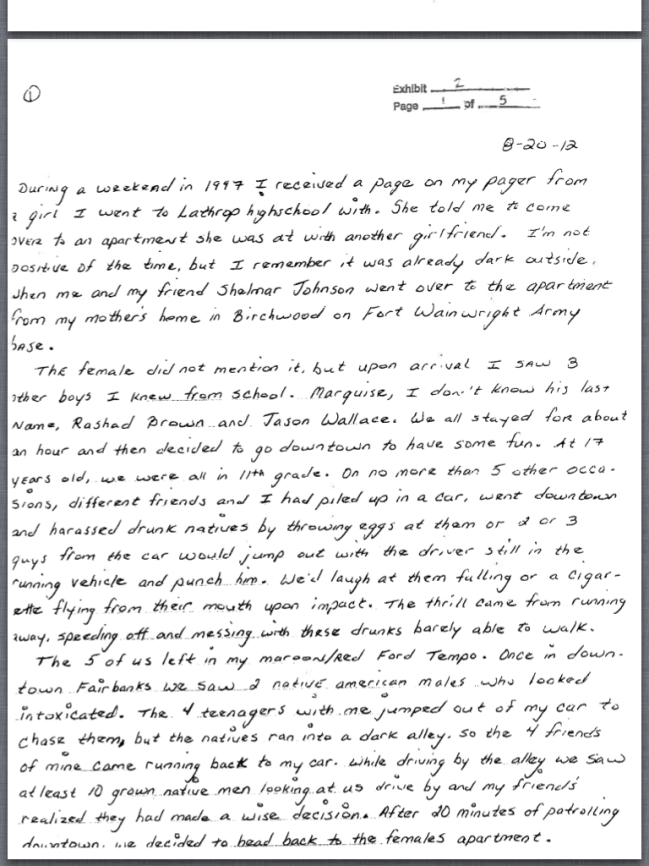 ①
Exhibit 2
Page 1 of 5
8-20-12
During a weekend in 1997 I received a page on my pager from
a girl I went to Lathrop highschool with. She told me to come
over to an apartment she was at with another girlfriend. I'm not
positive of the time, but I remember it was already dark outside,
when me and my friend Shelmar Johnson went over to the apartment
from my mother's home in Birchwood on Fort Wainwright Army
base.
The female did not mention it, but upon arrival I saw 3
other boys I knew from school. Marquise, I don't know his last
Name, Rashad Brown and Jason Wallace. We all stayed for about
an hour and then decided to go downtown to have some fun. At 17
years old, we were all in 11th grade. On no more than 5 other occa-
sions, different friends and I had piled up in a car, went downtown
and harassed drunk natives by throwing eggs at them or 2 or 3
guys from the car would jump out with the driver still in the
running vehicle and punch him. We'd laugh at them falling or a cigar-
ette flying from their mouth upon impact. The thrill came from running
away, speeding off and messing with these drunks barely able to walk.
The 5 of us left in my maroon/Red Ford Tempo. Once in down-
town Fairbanks we saw 2 native american males who looked
intoxicated. The 4 teenagers with me jumped out of my car to
chase them, but the natives ran into a dark alley. So the 4 friends
of mine came running back to my car. While driving by the alley we saw
at least 10 grown native men looking at us drive by and my friend's
realized they had made a wise decision. After 20 minutes of patrolling
downtown, we decided to head back to the females apartment.